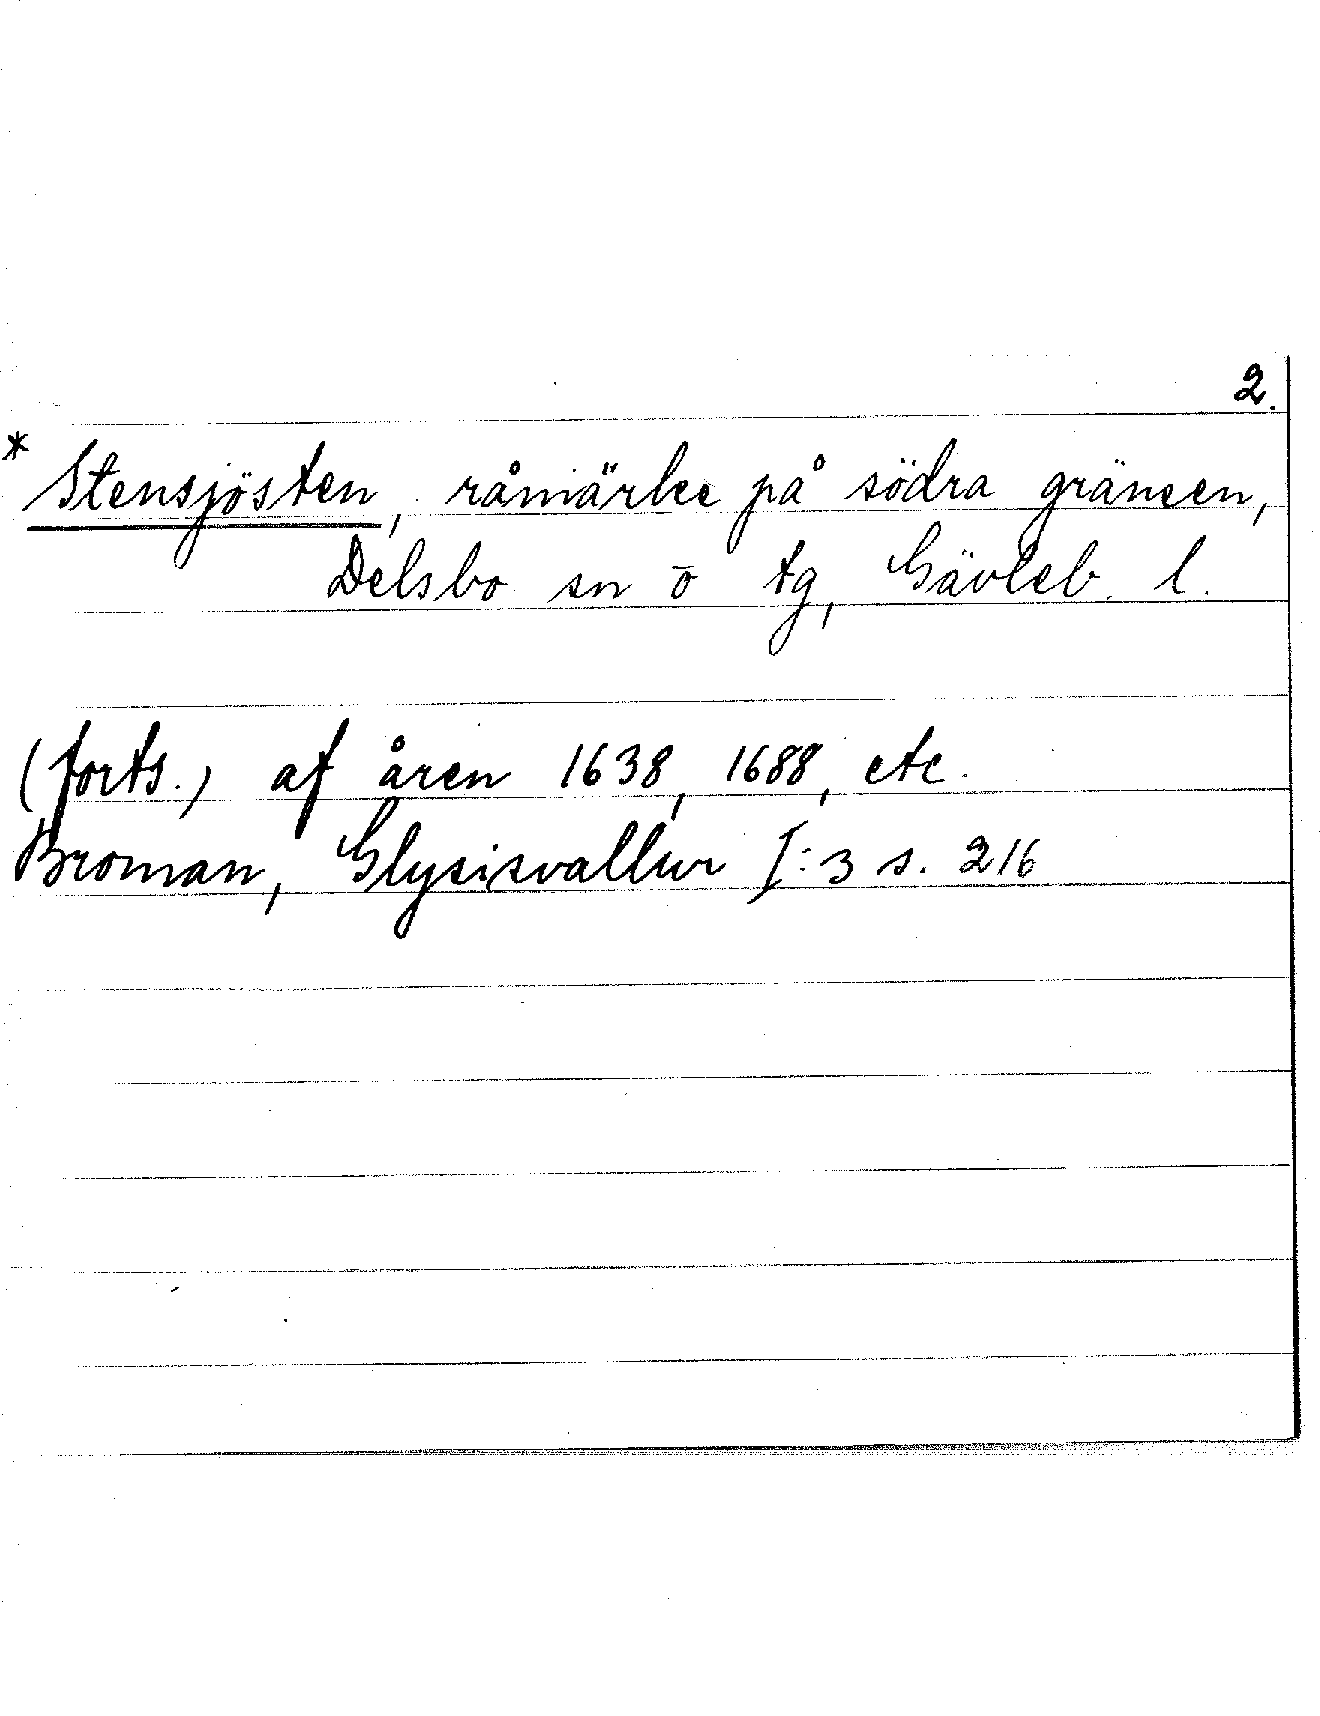 2.
* Stensjösten, råmärke på södra gränsen,
Delsbo sn o tg, Gävleb. l.
(forts.) af åren 1638, 1688, etc.
Broman, Glysisvallur I:3 s. 216